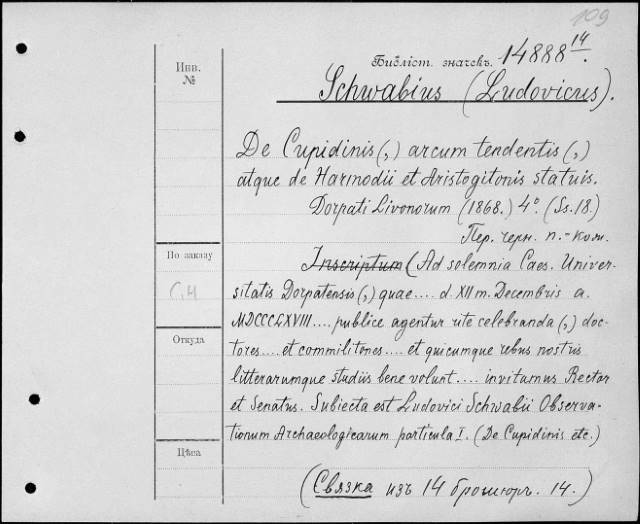 109
Библіот. значекъ. 14888 14.
Инв.
№
Schwabius (Ludovicus).
De Cupidinis (,) arcum tendentis (,)
atque de Harmodii et Aristogitonis statuis.
Dorpati Livonorum (1868.) 4° (Ss. 18.)
Пер. черн. п.-кож.
По заказу
Inscriptum (Ad solemnia Caes. Univer-
sitatis Dorpatensis (,) quae .... d. XII m. Decembris a.
MDCCCLXVIII .... publice agentur rite celebranda (,) doc-
Откуда
tores .... et commilitones .... et quicumque rebus nostris
litterarumque studiis bene volunt .... invitamus Rector
et Senatus. Subiecta est Ludovici Schwabii Observa-
tionum Archaeologicarum particula I. (De Cupidinis etc.)
Цѣса
(Связка изъ 14 брошюръ. 14.)